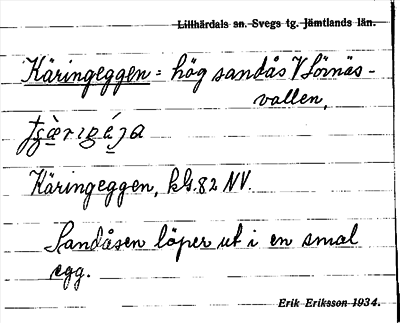 Lillhärdals sn. Svegs tg. Jämtlands län.
Käringeggen = hög sandås V Lörnäs-
vallen,
Käringeggen, kG.82 NV.
Sandåsen löper ut i en smal
egg.
Erik Eriksson 1934.